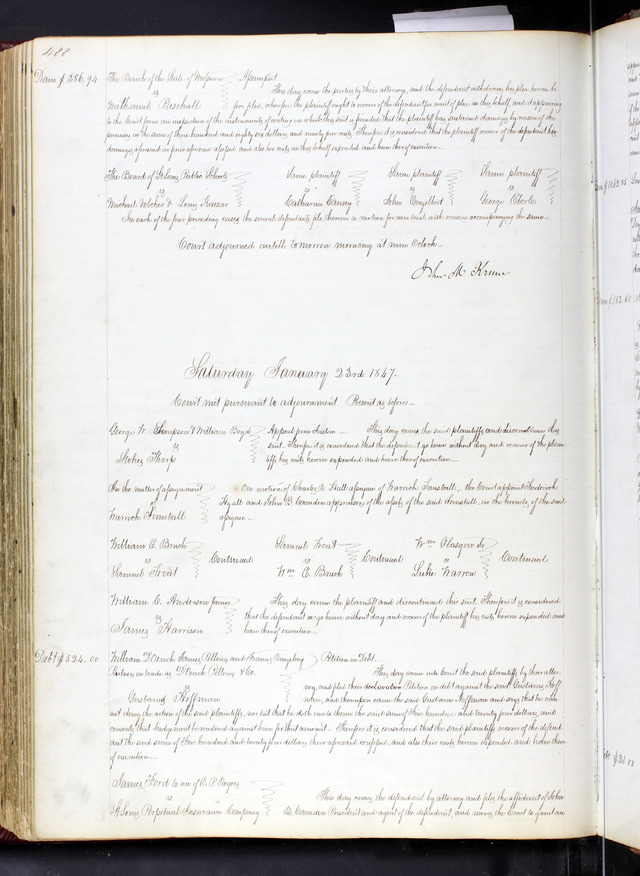 488
Dam $386.94
The Bank of the State of Missouri
vs
Nathaniel Paschall
Assumpsit
This day came the parties by their attorneys, and the defendant withdraws his plea herein
pleaded, wherefore the plaintiff ought to recover of the defendant for want of plea in this behalf, and it appearing
to the Court from an inspection of the instrument of writing on which this suit is founded, that the plaintiff has sustained damages by reason of the
premises in the sum of three hundred and eighty six dollars and ninety four cents. Therefore it is considered that the plaintiff recover of the defendant his
damages aforesaid in form aforesaid assessed and also his costs in this behalf expended and have thereof execution.
The Board of St Louis Public Schools
vs
Michael Volcker & Louis Kaesar
Same plaintiff
vs
Catharine Carsey
Same plaintiff
vs
John Engelbert
Same plaintiff
vs
George Eberle
In each of the four preceding cases the several defendants file therein a motion for new trial with reasons accompanying the same.
Court adjourned untill tomorrow morning at nine Oclock.
John M Krum
Saturday January 23rd 1847
Court met pursuant to adjournment Present as before
George W. Simpson & William Boyd
vs
Stokes Thorp
Appeal from Justice
This day comes the said plaintiffs and discontinue this
suit. Therefore it is considered that the defendant go hence without day and recover of the plain
tiffs his costs herein expended and have thereof execution.
In the matter of assignment
Warrick Tunstall
On motion of Charles C. Hall assignee of Warrick Tunstall, the Court appoint Frederick
Hyatt and John B. Camden appraisers of the assets of the said Tunstall, in the hands of the said
assignee.
William E. Brush
vs
Samuel Treat
Continued
Samuel Treat
vs
Wm E. Brush
Continued
Wm Glasgow Jr
vs
Luke Warren
Continued
William C. Anderson
vs
James Harrison
This day came the plaintiff and discontinued this suit. Therefore it is considered
that the defendant go hence without day and recover of the plaintiff his costs herein expended and
have thereof execution.
Debt $524.00
William D'Oench James
and Francis
Partners in trade as D'Oench
& Co.
vs
Gustavus Hoffman
Petition in Debt.
This day came into Court the said plaintiffs by their attor-
ney, and filed their Petition in debt against the said Gustavus Hoff
man, and thereupon came the said Gustavus Hoffman and says that he can
not deny the action of the said plaintiffs, nor but that he doth owe to them the said sum of Five hundred and twenty four dollars, and
consents that judgment be rendered against him for that amount. Therefore it is considered that the said plaintiffs recover of the defend-
ant the said sum of Five hundred and twenty four dollars, their aforesaid confessed, and also their costs herein expended and have there
of execution.
James Ford to use of O. P. Rogers
vs
St Louis Perpetual Insurance Company
This day comes the defendant by attorney and files the affidavit of John
B. Camden President and agent of the defendant, and moves the Court to grant an